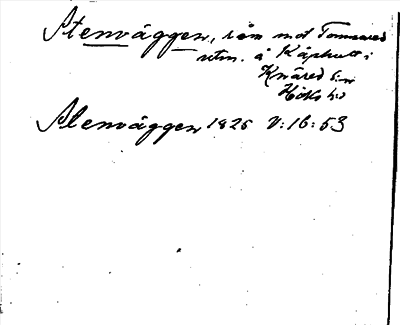 Stenväggen, rån mot Tormared
utm. å Kåphult i
Knäred s:n
Höks h:d
Stenväggen 1825 V:16:53